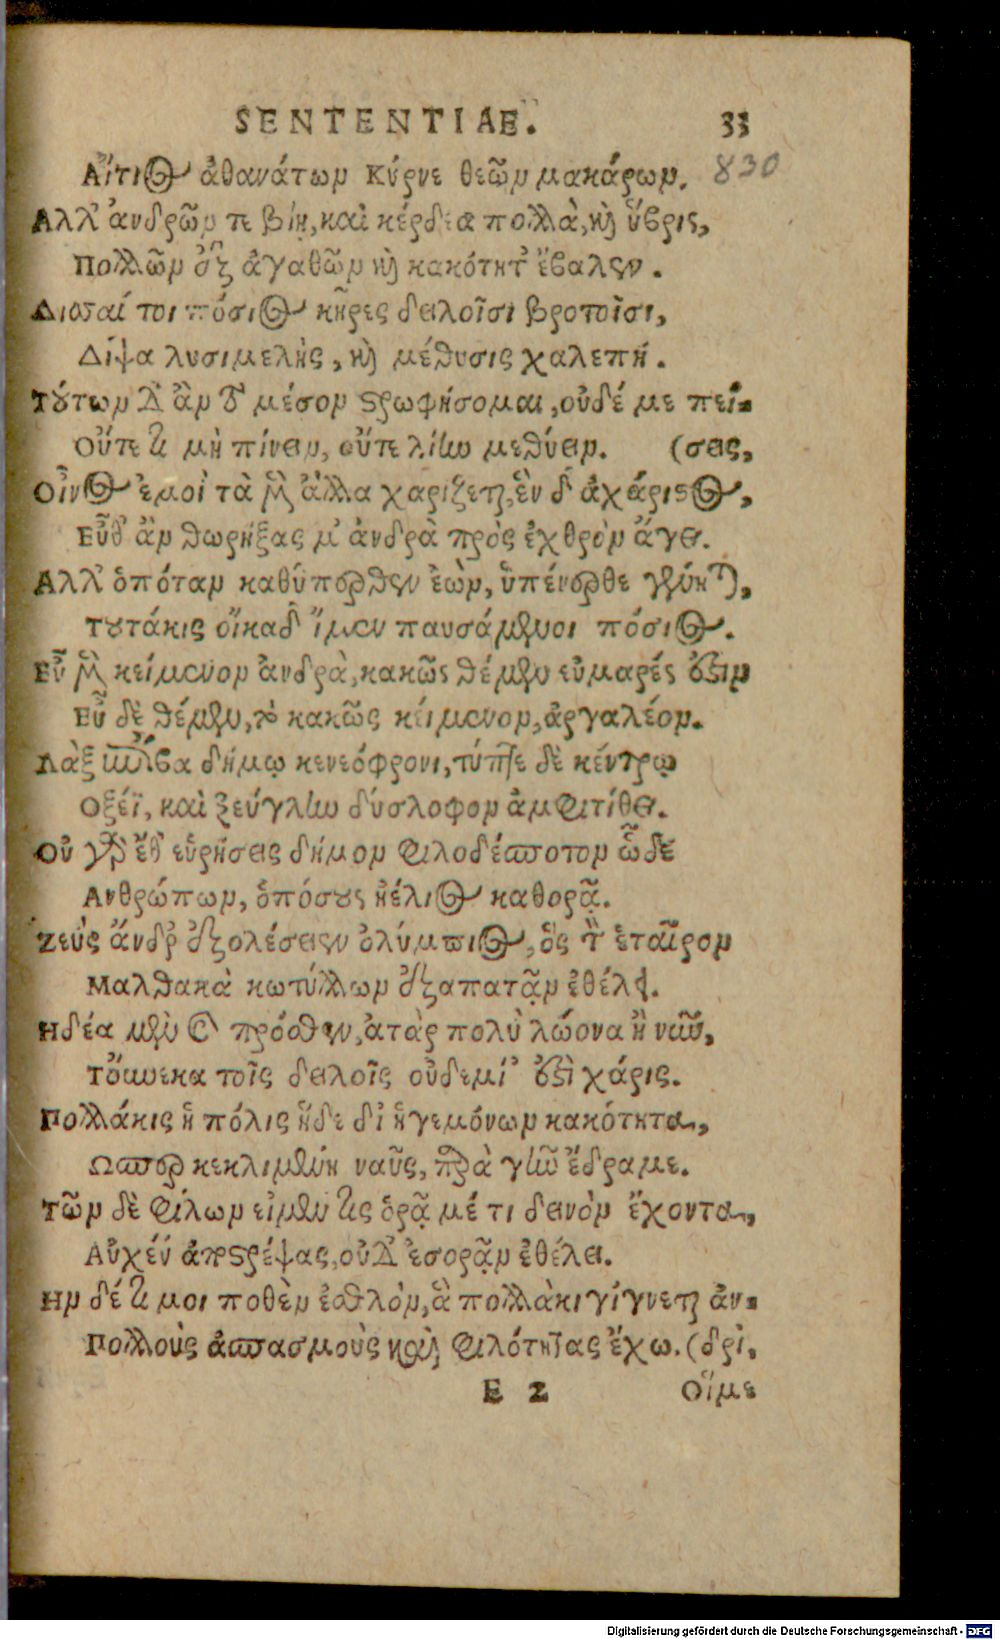 SENTENTIAE. 33
Αἴτιος ἀθανάτων Κύρνε θεῶν μακάρων. 830
Αλλ' ἀνδρῶν τε βίη, καὶ κέρδεα πολλὰ, καὶ ὕβρις,
Πολλῶν ἐξ ἀγαθῶν καὶ κακότητ' ἔβαλεν.
Δισσαί τοι πόσιος κῆρες δειλοῖσι βροτοῖσι,
Δίψα λυσιμελὴς, καὶ μέθυσις χαλεπή.
Τούτων δ' ἂν τὸ μέσον στρωφήσομαι, οὐδέ με πεί-
Οὔτε τι μὴ πίνειν, οὔτε λίην μεθύειν. (σεις,
Οἶνος ἐμοὶ τὰ μὲν ἄλλα χαρίζεται, ἓν δ' ἀχάριστος,
Εὖτ' ἂν θωρήξας μ' ἀνδρὰ πρὸς ἐχθρὸν ἄγει.
Αλλ' ὁπόταν καθύπερθεν ἐὼν, ὑπένερθε γένηται,
Τουτάκις οἴκαδ' ἴμεν παυσάμενοι πόσιος.
Εὖ μὲν κείμενον ἀνδρὰ, κακῶς θέμεν εὐμαρές ἐστιν
Εὖ δὲ θέμεν, τὸ κακῶς κείμενον, ἀργαλέον.
Λὰξ ἐπίβα δήμῳ κενεόφρονι, τύπτε δὲ κέντρῳ
Οξέϊ, καὶ ζεύγλην δύσλοφον ἀμφιτίθει.
Οὐ γὰρ ἔθ' εὑρήσεις δήμον φιλοδέσποτον ὧδε
Ανθρώπων, ὁπόσους ἠέλιος καθορᾷ.
Ζεὺς ἄνδρ' ἐξολέσειεν ὀλύμπιος, ὃς τὸν ἑταῖρον
Μαλθακὰ κωτίλλων ἐξαπατᾷν ἐθέλει.
Ηδέα μὲν καὶ πρόσθεν, ἀτὰρ πολὺ λώονα ἢ νῶν,
Τοὔνεκα τοῖς δειλοῖς οὐδεμί' ἐστὶ χάρις.
Πολλάκις ἡ πόλις ἥδε δι' ἡγεμόνων κακότητα,
Ωσπερ κεκλιμένη ναῦς, παρὰ γῆν ἔδραμε.
Τῶν δὲ φίλων εἰ μέν τις ὁρᾷ μέ τι δεινὸν ἔχοντα,
Αὐχέν' ἀποστρέψας, οὐδ' ἐσορᾷν ἐθέλει.
Ην δέ τι μοι ποθὲν ἐσθλὸν, ἃ πολλάκι γίγνεται ἀν-
Πολλοὺς ἀσπασμοὺς καὶ φιλότητας ἔχω. (δρὶ,
E 2 Οἵμε
Digitalisierung gefördert durch die Deutsche Forschungsgemeinschaft - DFG